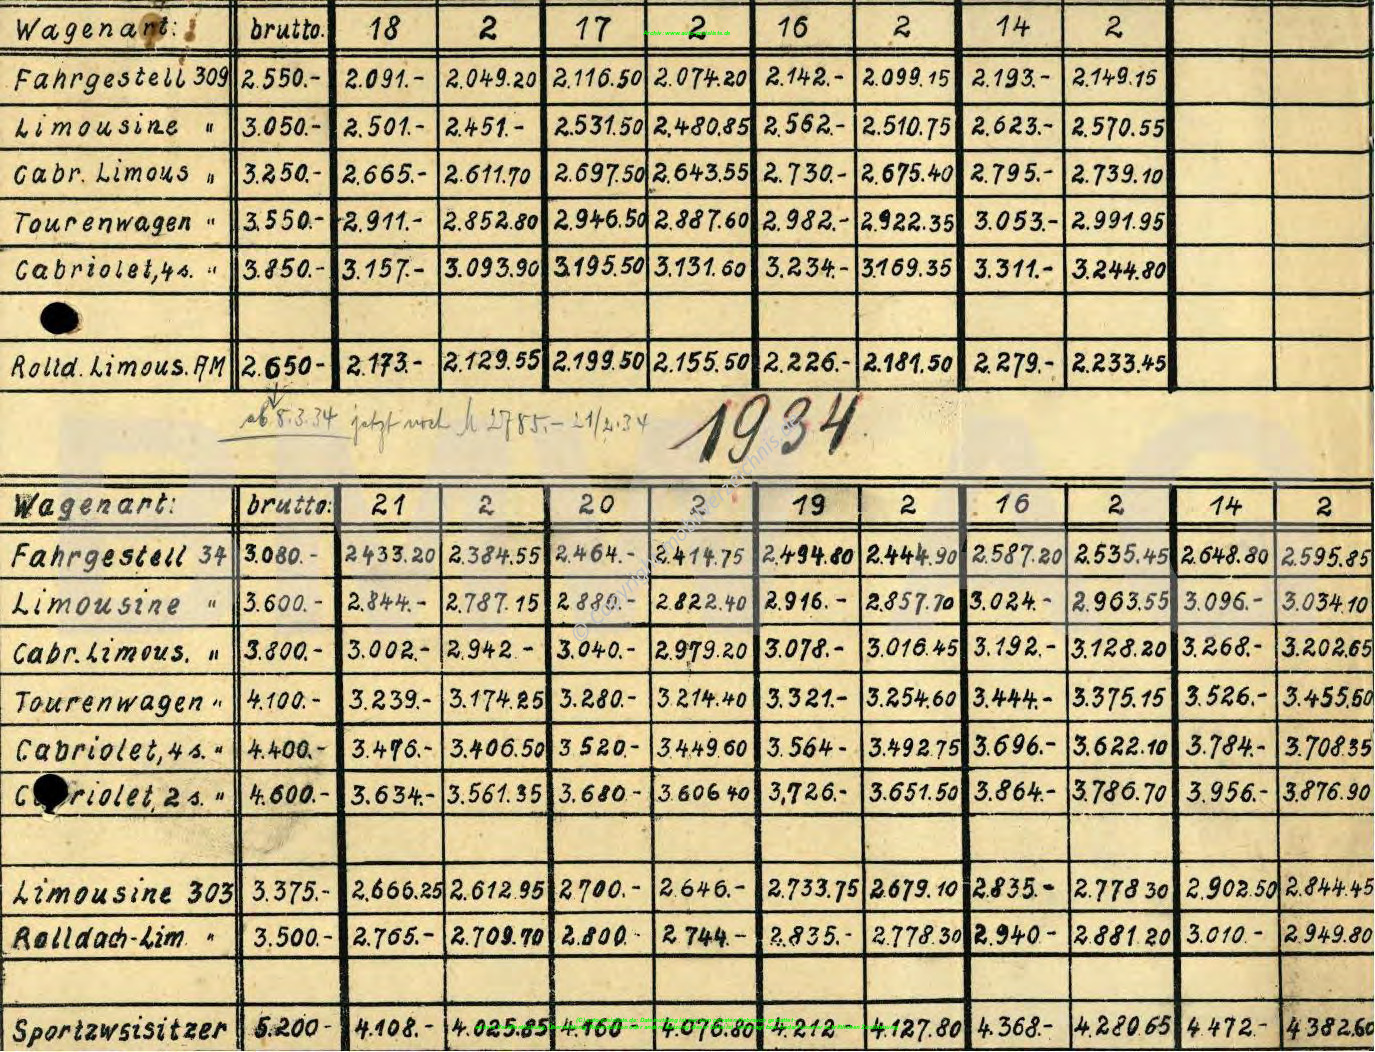 Wagenart: brutto. 18 2 17 2 16 2 14 2
Fahrgestell 309 2.550.- 2.091.- 2.049.20 2.116.50 2.074.20 2.142.- 2.099.15 2.193.- 2.149.15
Limousine " 3.050.- 2.501.- 2.451.- 2.531.50 2.480.85 2.562.- 2.510.75 2.623.- 2.570.55
Cabr. Limous " 3.250.- 2.665.- 2.611.70 2.697.50 2.643.55 2.730.- 2.675.40 2.795.- 2.739.10
Tourenwagen " 3.550.- 2.911.- 2.852.80 2.946.50 2.887.60 2.982.- 2.922.35 3.053.- 2.991.95
Cabriolet, 4 s. " 3.850.- 3.157.- 3.093.90 3.195.50 3.131.60 3.234.- 3.169.35 3.311.- 3.244.80
Rolld. Limous. A/M 2.650- 2.173.- 2.129.55 2.199.50 2.155.50 2.226.- 2.181.50 2.279.- 2.233.45
ab 8.3.34 jetzt noch 2785.- 21/2.34
1934
Wagenart: brutto: 21 2 20 2 19 2 16 2 14 2
Fahrgestell 34 3.080.- 2433.20 2.384.55 2.464.- 2.414.75 2.494.80 2.444.90 2.587.20 2.535.45 2.648.80 2.595.85
Limousine " 3.600.- 2.844.- 2.787.15 2880.- 2.822.40 2.916.- 2.857.70 3.024.- 2.963.55 3.096.- 3.034.10
Cabr. Limous. " 3.800.- 3.002.- 2.942.- 3.040.- 2.979.20 3.078.- 3.016.45 3.192.- 3.128.20 3.268.- 3.202.65
Tourenwagen " 4.100.- 3.239.- 3.174.25 3.280.- 3.214.40 3.321.- 3.254.60 3.444.- 3.375.15 3.526.- 3.455.50
Cabriolet, 4 s. " 4.400.- 3.476.- 3.406.50 3520.- 3449.60 3.564- 3.492.75 3.696.- 3.622.10 3.784.- 3.708.35
Cabriolet, 2 s. " 4.600.- 3.634.- 3.561.35 3.680- 3.606.40 3,726.- 3.651.50 3.864.- 3.786.70 3.956.- 3.876.90
Limousine 303 3.375.- 2.666.25 2.612.95 2700.- 2.646.- 2.733.75 2679.10 2.835.- 2.778 30 2.902.50 2.844.45
Rolldach-Lim. " 3.500.- 2.765.- 2.709.70 2.800.- 2744.- 2.835.- 2.778.30 2.940- 2.881.20 3.010.- 2.949.80
Sportzwsisitzer 5.200- 4.108.- 4.025.85 4.160 4.076.80 4.212 4.127.80 4.368.- 4.280.65 4.472.- 4382.60